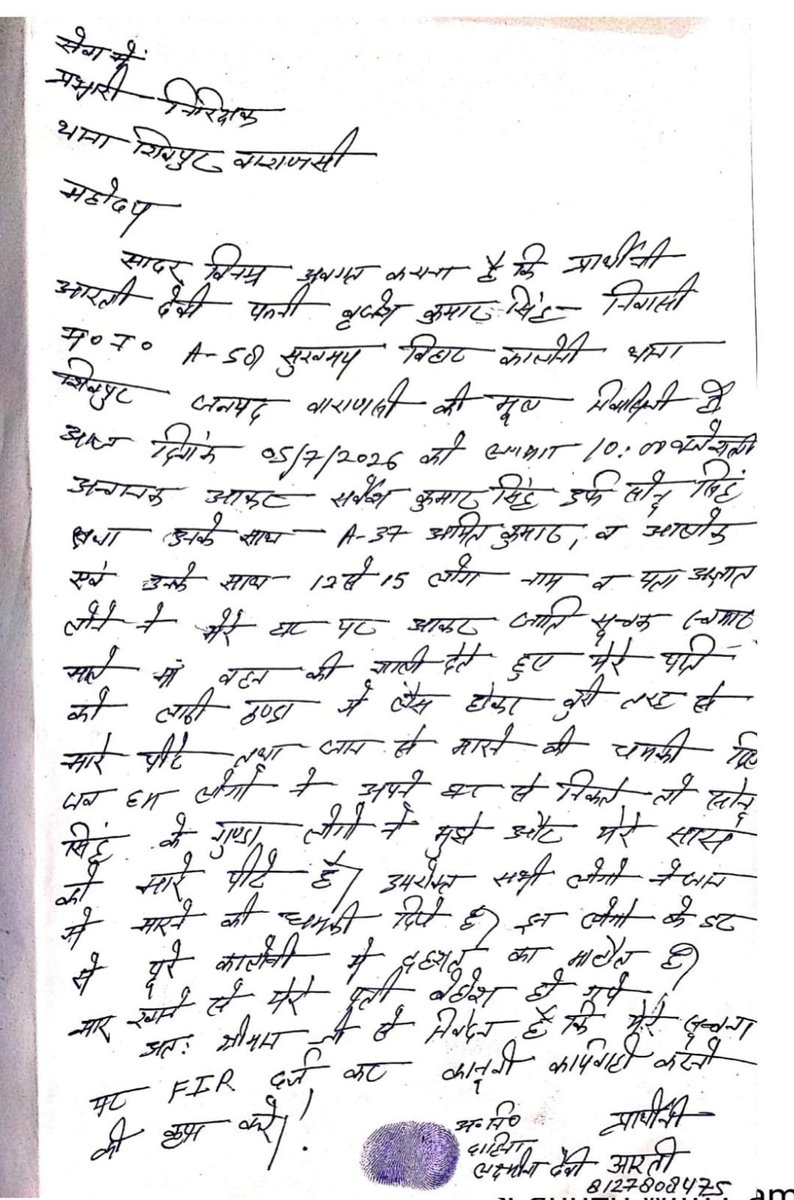 सेवा में
प्रभारी निरिक्षक
थाना शिवपुर वाराणसी
महोदय
सादर विनम्र अवगत कराना है कि प्रार्थीनी
आरती देवी पत्नी बृजेश कुमार सिंह निवासी
म० न० A-50 सुखमय विहार कालोनी थाना
शिवपुर जनपद वाराणसी की मूल निवासिनी है
आज दिनांक 05/7/2026 को लगभग 10:00 बजे रात्री
अचानक आकर सर्वेश कुमार सिंह उर्फ सोनू सिंह
तथा उनके साथ A-37 अमित कुमार, व आलोक
एवं उनके साथ 12 से 15 लोग नाम व पता अज्ञात
लोगो ने मेरे घर पर आकर जाति सूचक चमार
साले मां बहन की गाली देते हुए मेरे पति
को लाठी डण्डा से लैस होकर बुरी तरह से
मारे पीटे तथा जान से मारने की धमकी दिए
जब हम लोगो ने अपने घर से निकले तो सोनू
सिंह के गुण्डा लोगो ने मुझे और मेरे सास
को मारे पीटे है। उपरोक्त सभी लोगो ने जान
से मारने की धमकी दिये है। इन लोगो के डर
से पूरे कालोनी मे दहशत का माहौल है।
मार खाने से मेरे पती बेहोश हो गये।
अतः श्रीमान जी से निवेदन है कि मेरे सूचना
पर FIR दर्ज कर कानूनी कार्यवाही करने
की कृपा करे।!
अ० नि० प्रार्थीनी
दाहिना
देवी आरती
8127808475